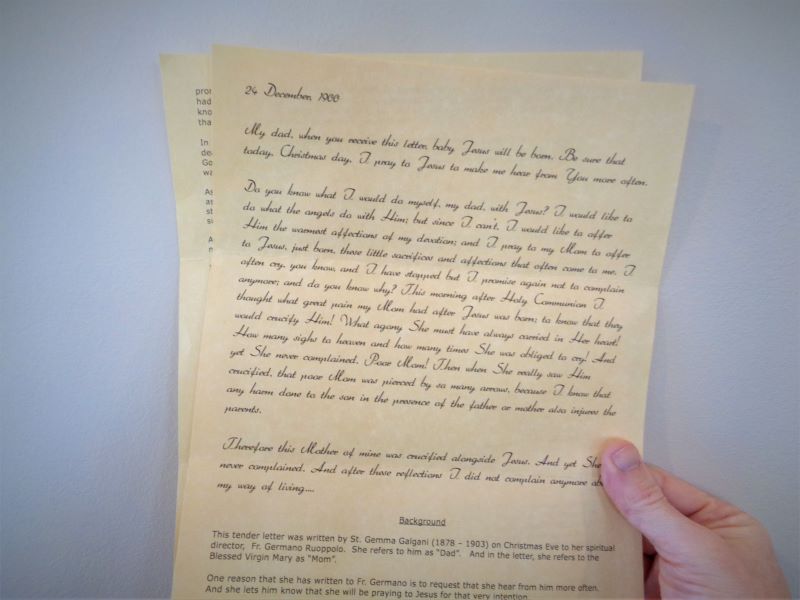 24 December, 1900
My dad, when you receive this letter, baby Jesus will be born. Be sure that
today, Christmas day, I pray to Jesus to make me hear from You more often.
Do you know what I would do myself, my dad, with Jesus? I would like to
do what the angels do with Him; but since I can't, I would like to offer
Him the warmest affections of my devotion; and I pray to my Mom to offer
to Jesus, just born, these little sacrifices and affections that often come to me. I
often cry, you know, and I have stopped but I promise again not to complain
anymore; and do you know why? This morning after Holy Communion I
thought what great pain my Mom had after Jesus was born; to know that they
would crucify Him! What agony She must have always carried in Her heart!
How many sighs to heaven and how many times She was obliged to cry! And
yet She never complained. Poor Mom! Then when She really saw Him
crucified, that poor Mom was pierced by so many arrows, because I know that
any harm done to the son in the presence of the father or mother also injures the
parents.
Therefore this Mother of mine was crucified alongside Jesus. And yet She
never complained. And after these reflections I did not complain anymore
my way of living....
Background
This tender letter was written by St. Gemma Galgani (1878 - 1903) on Christmas Eve to her spiritual
director, Fr. Germano Ruoppolo. She refers to him as "Dad". And in the letter, she refers to the
Blessed Virgin Mary as "Mom".
One reason that she has written to Fr. Germano is to request that she hear from him more often.
And she lets him know that she will be praying to Jesus for that very intention.
had
tha
In